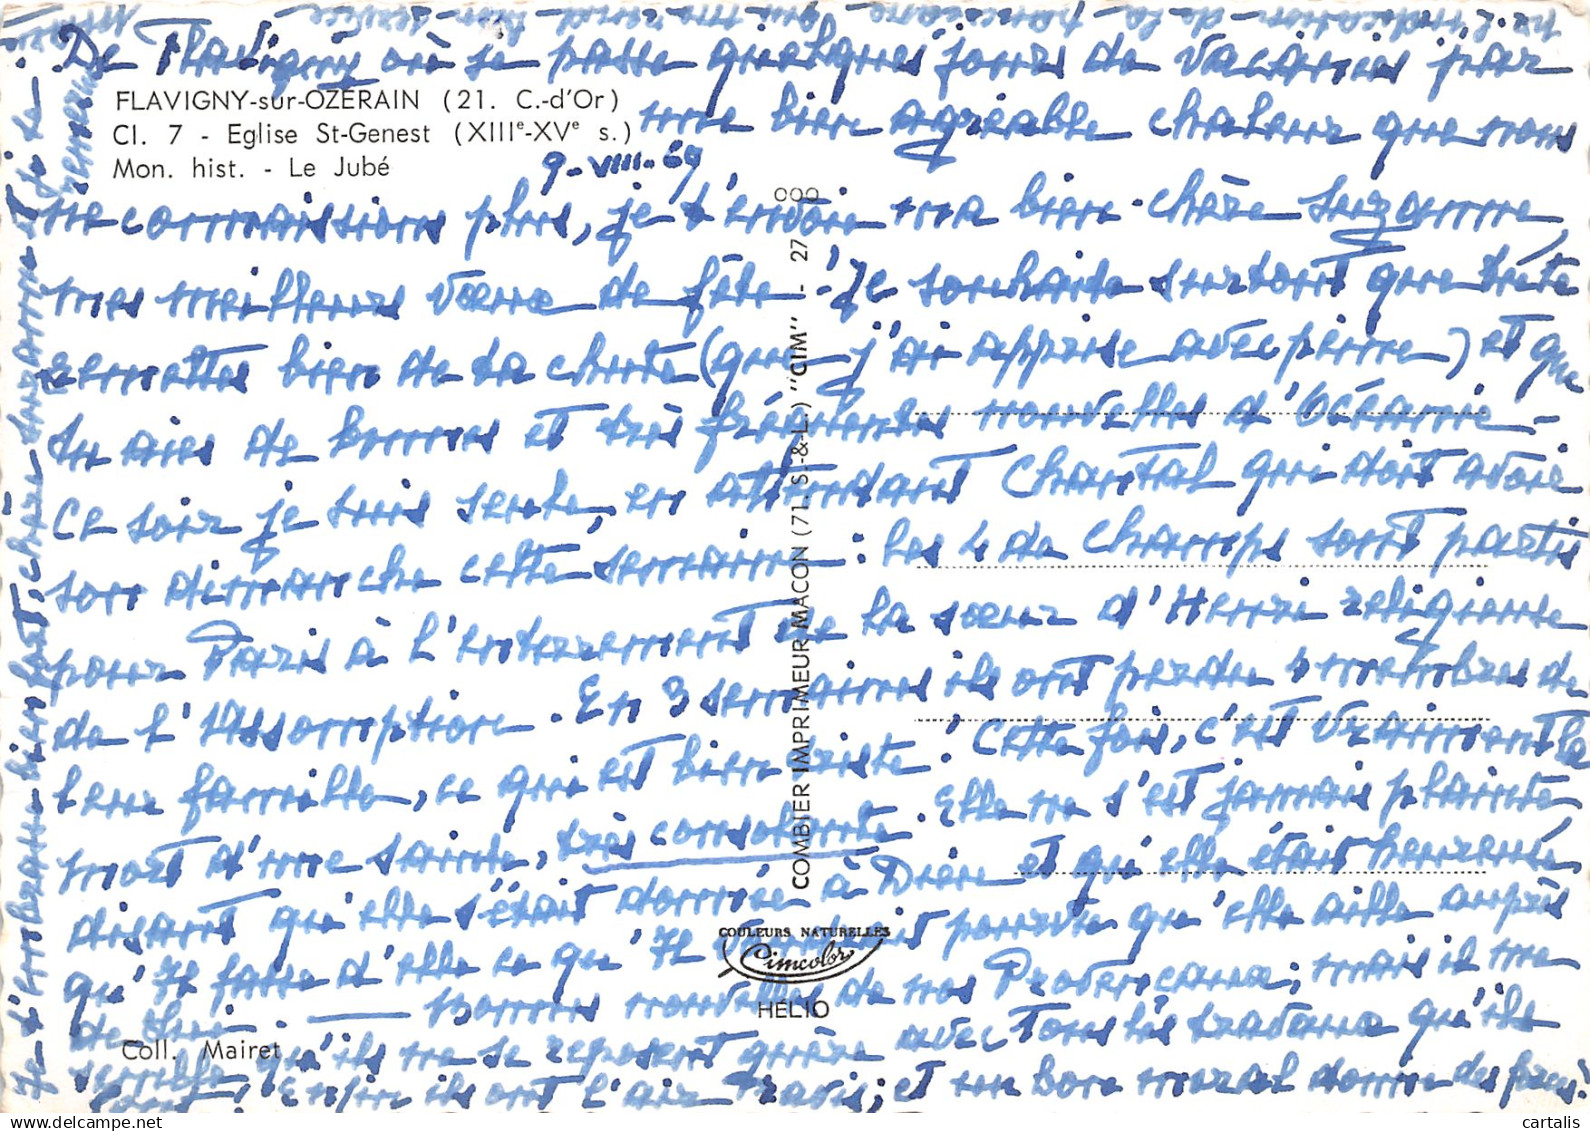 De Flavigny où je passe quelques jours de vacances par
FLAVIGNY-sur-OZERAIN (21. C.-d'Or)
Cl. 7 - Eglise St-Genest (XIIIe-XVe s.)
Mon. hist. - Le Jubé
une bien agréable chaleur que nous
9-VIII-69
ne connaissions plus, je t'envoie ma bien chère Suzanne,
mes meilleurs vœux de fête. Je souhaite surtout que tu te
remettes bien de ta chute (que j'ai apprise avec peine) et que
tu aies de bonnes et très fréquentes nouvelles d'Océanie -
Ce soir je suis seule, en attendant Chantal qui doit avoir
son dimanche cette semaine : les 4 de Champs sont partis
pour Paris à l'enterrement de la sœur d'Henri religieuse
de l'Assomption. En 3 semaines ils ont perdu 4 membres de
leur famille, ce qui est bien triste. Cette fois, c'est vraiment la
mort d'une sainte, très consolante. Elle ne s'est jamais plainte
disant qu'elle s'était donnée à Dieu et qu'elle était heureuse
qu'Il fasse d'elle ce qu'Il pourvu qu'elle aille auprès
de Lui. Bonnes nouvelles de nos Provençaux ; mais il me
semble qu'ils ne se reposent guère avec tous les travaux qu'ils
font ! Enfin ils ont l'air ravis ; et un bon moral donne des forces !
Je t'embrasse bien fort, chère Suzanne et je te
COMBIER IMPRIMEUR MACON (71. S.-&-L.) "CIM" - 27 000
COULEURS NATURELLES
Cimcolor
HÉLIO
Coll. Mairet